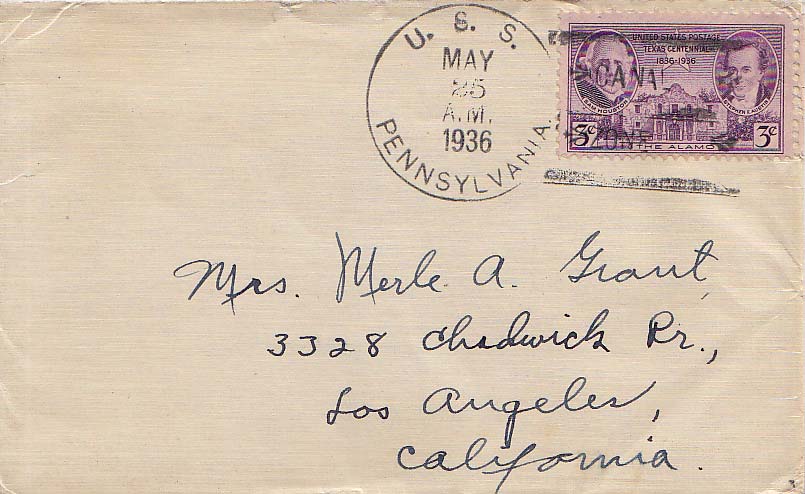 U. S. S.
MAY
25
A.M.
1936
PENNSYLVANIA.
UNITED STATES POSTAGE
TEXAS CENTENNIAL
1836-1936
CANAL
SAM HOUSTON
STEPHEN F. AUSTIN
3¢ 3¢
ZONE
THE ALAMO
Mrs. Merle A. Grant,
3328 Chadwick Dr.,
Los Angeles,
California.